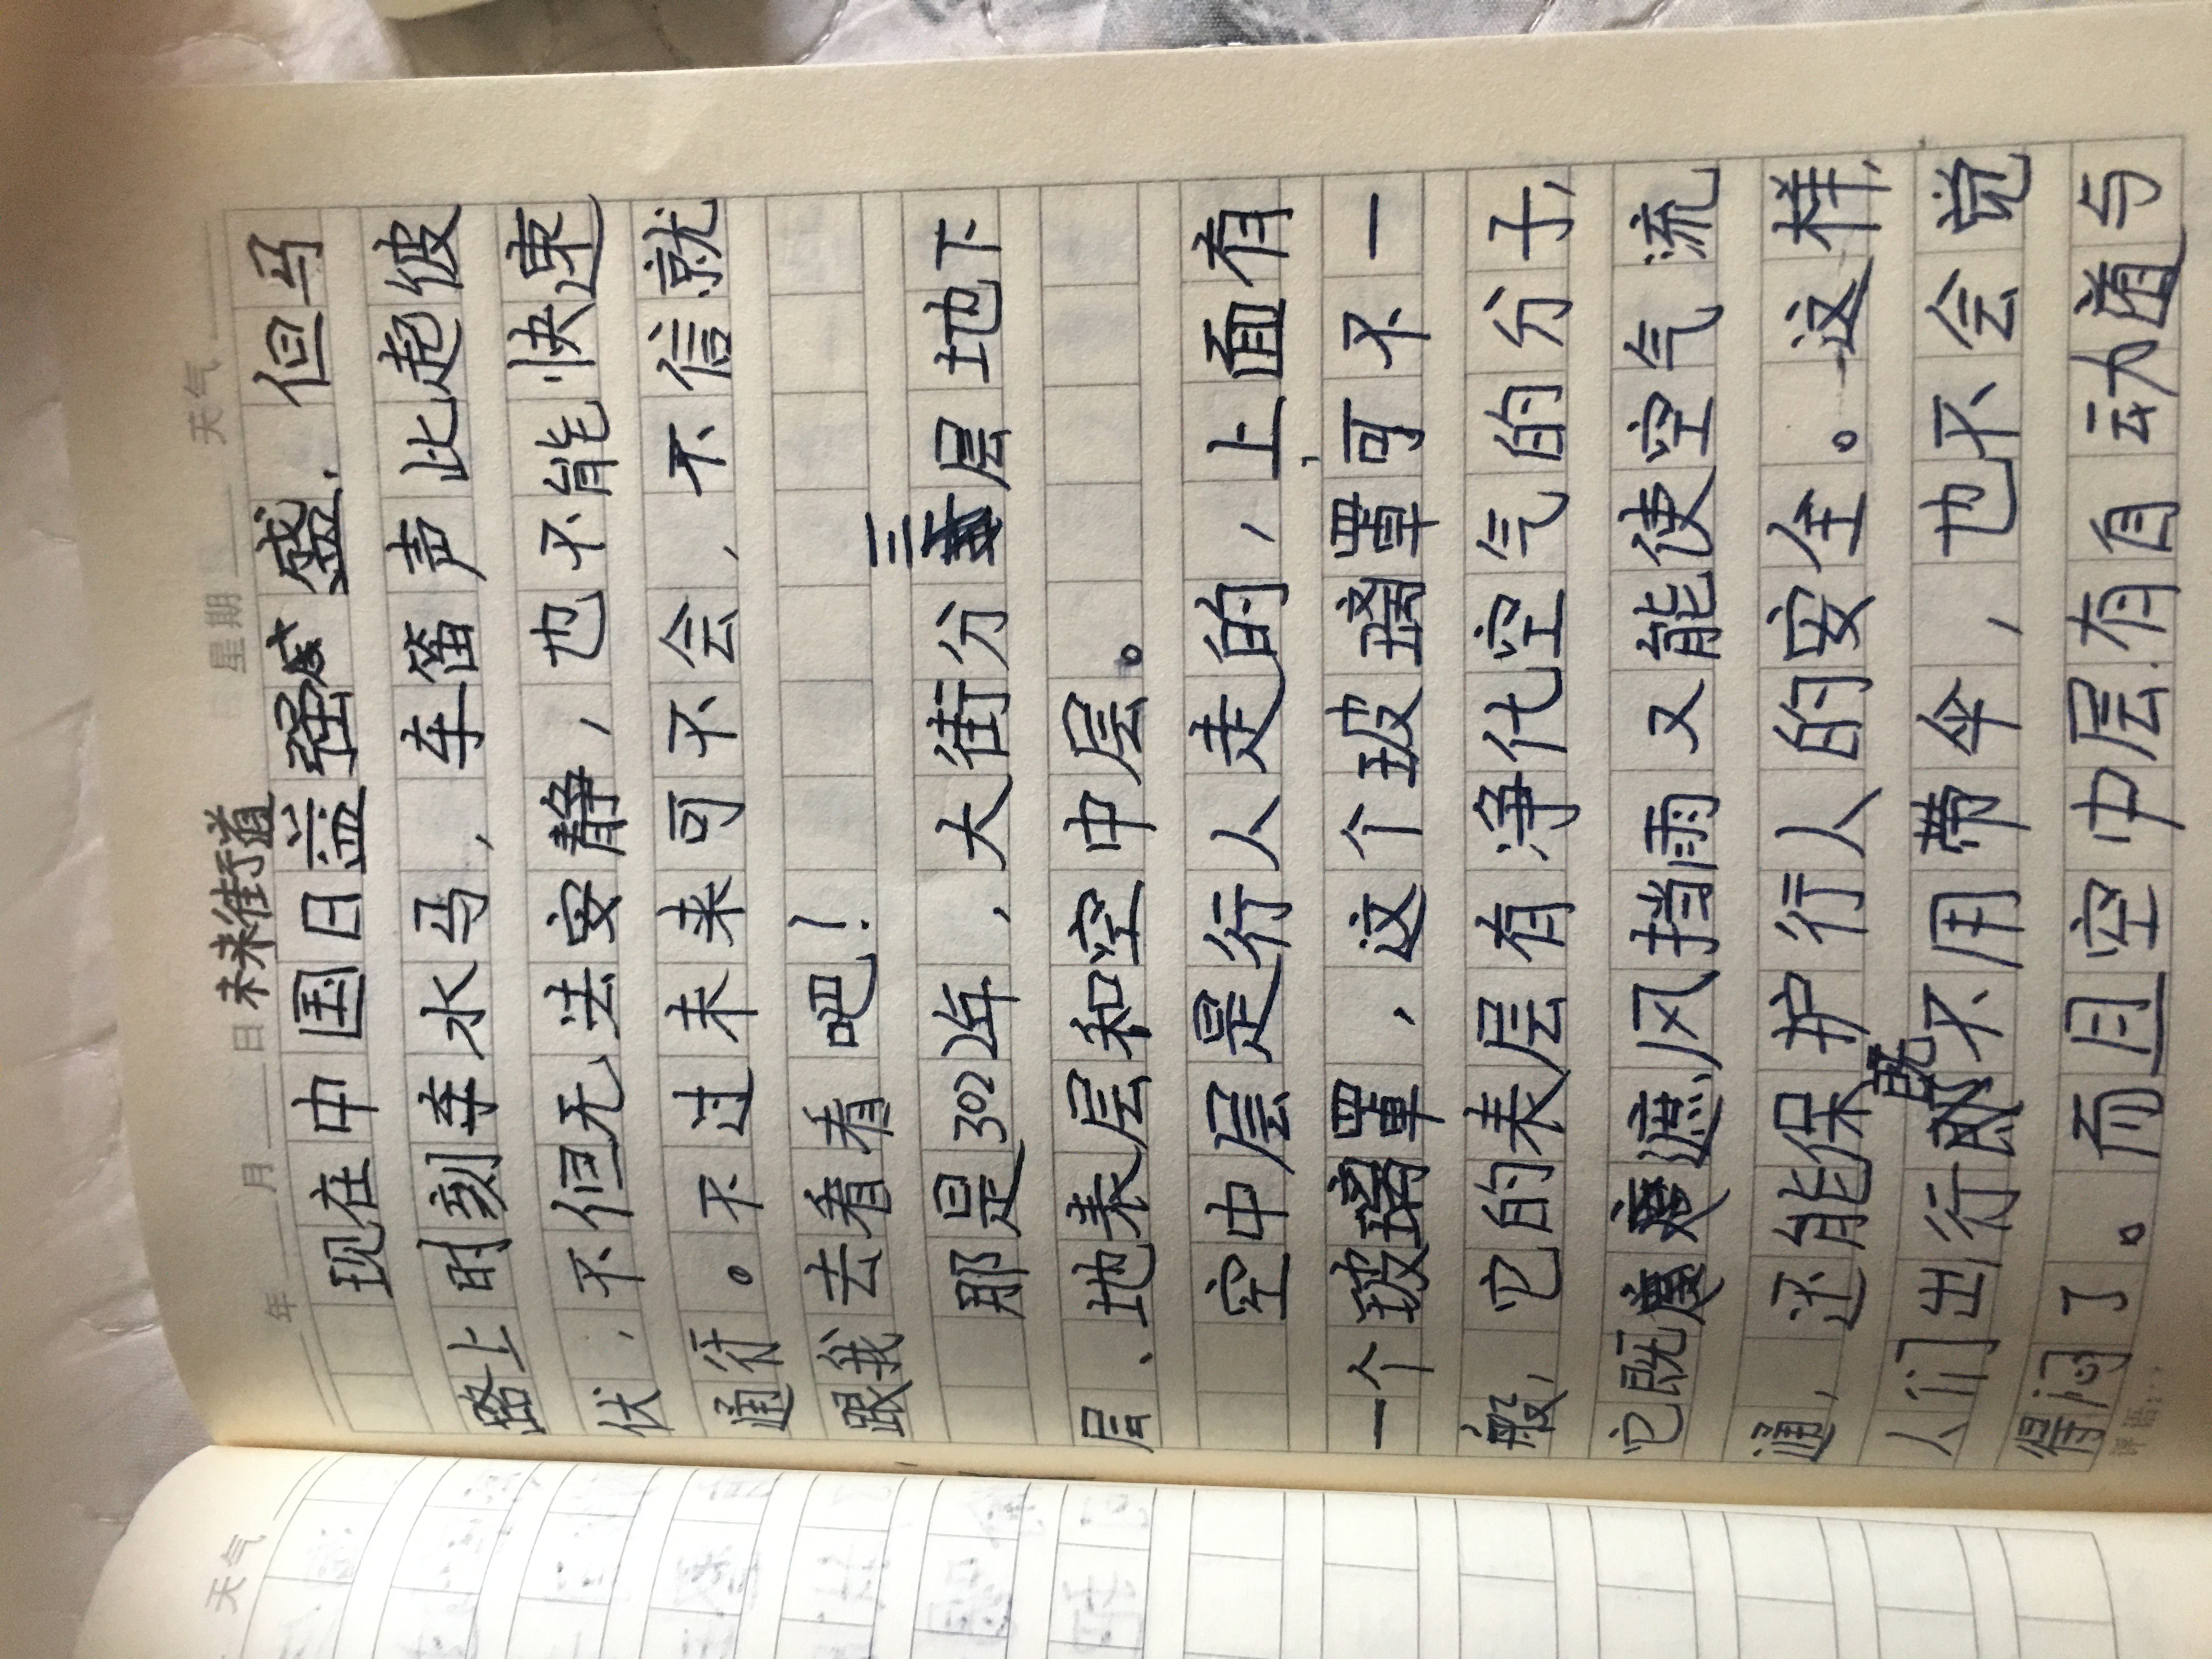 年 月 日 星期 天气
未来街道
现在中国日益强盛.但马
路上时刻车水马,车笛声此起彼
伏,不但无法安静,也不能快速
通行。不过未来可不会,不信就
跟我去看看吧!
那是302年,大街分三层地下
层、地表层和空中层。
空中层是行人走的,上面有
一个玻璃罩,这个玻璃罩可不一
般,它的表层有净化空气的分子,
它既遮风挡雨又能使空气流
通,还能保护行人的安全。这样,
人们出行既不用带伞,也不会觉
得闷了。而且空中层有自动道与
评语:
天气